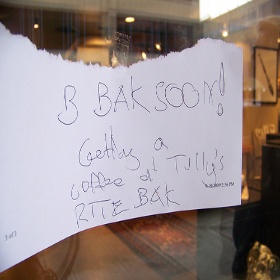 B BAK SOON!
Getting a
coffee at Tully's
RITE BAK